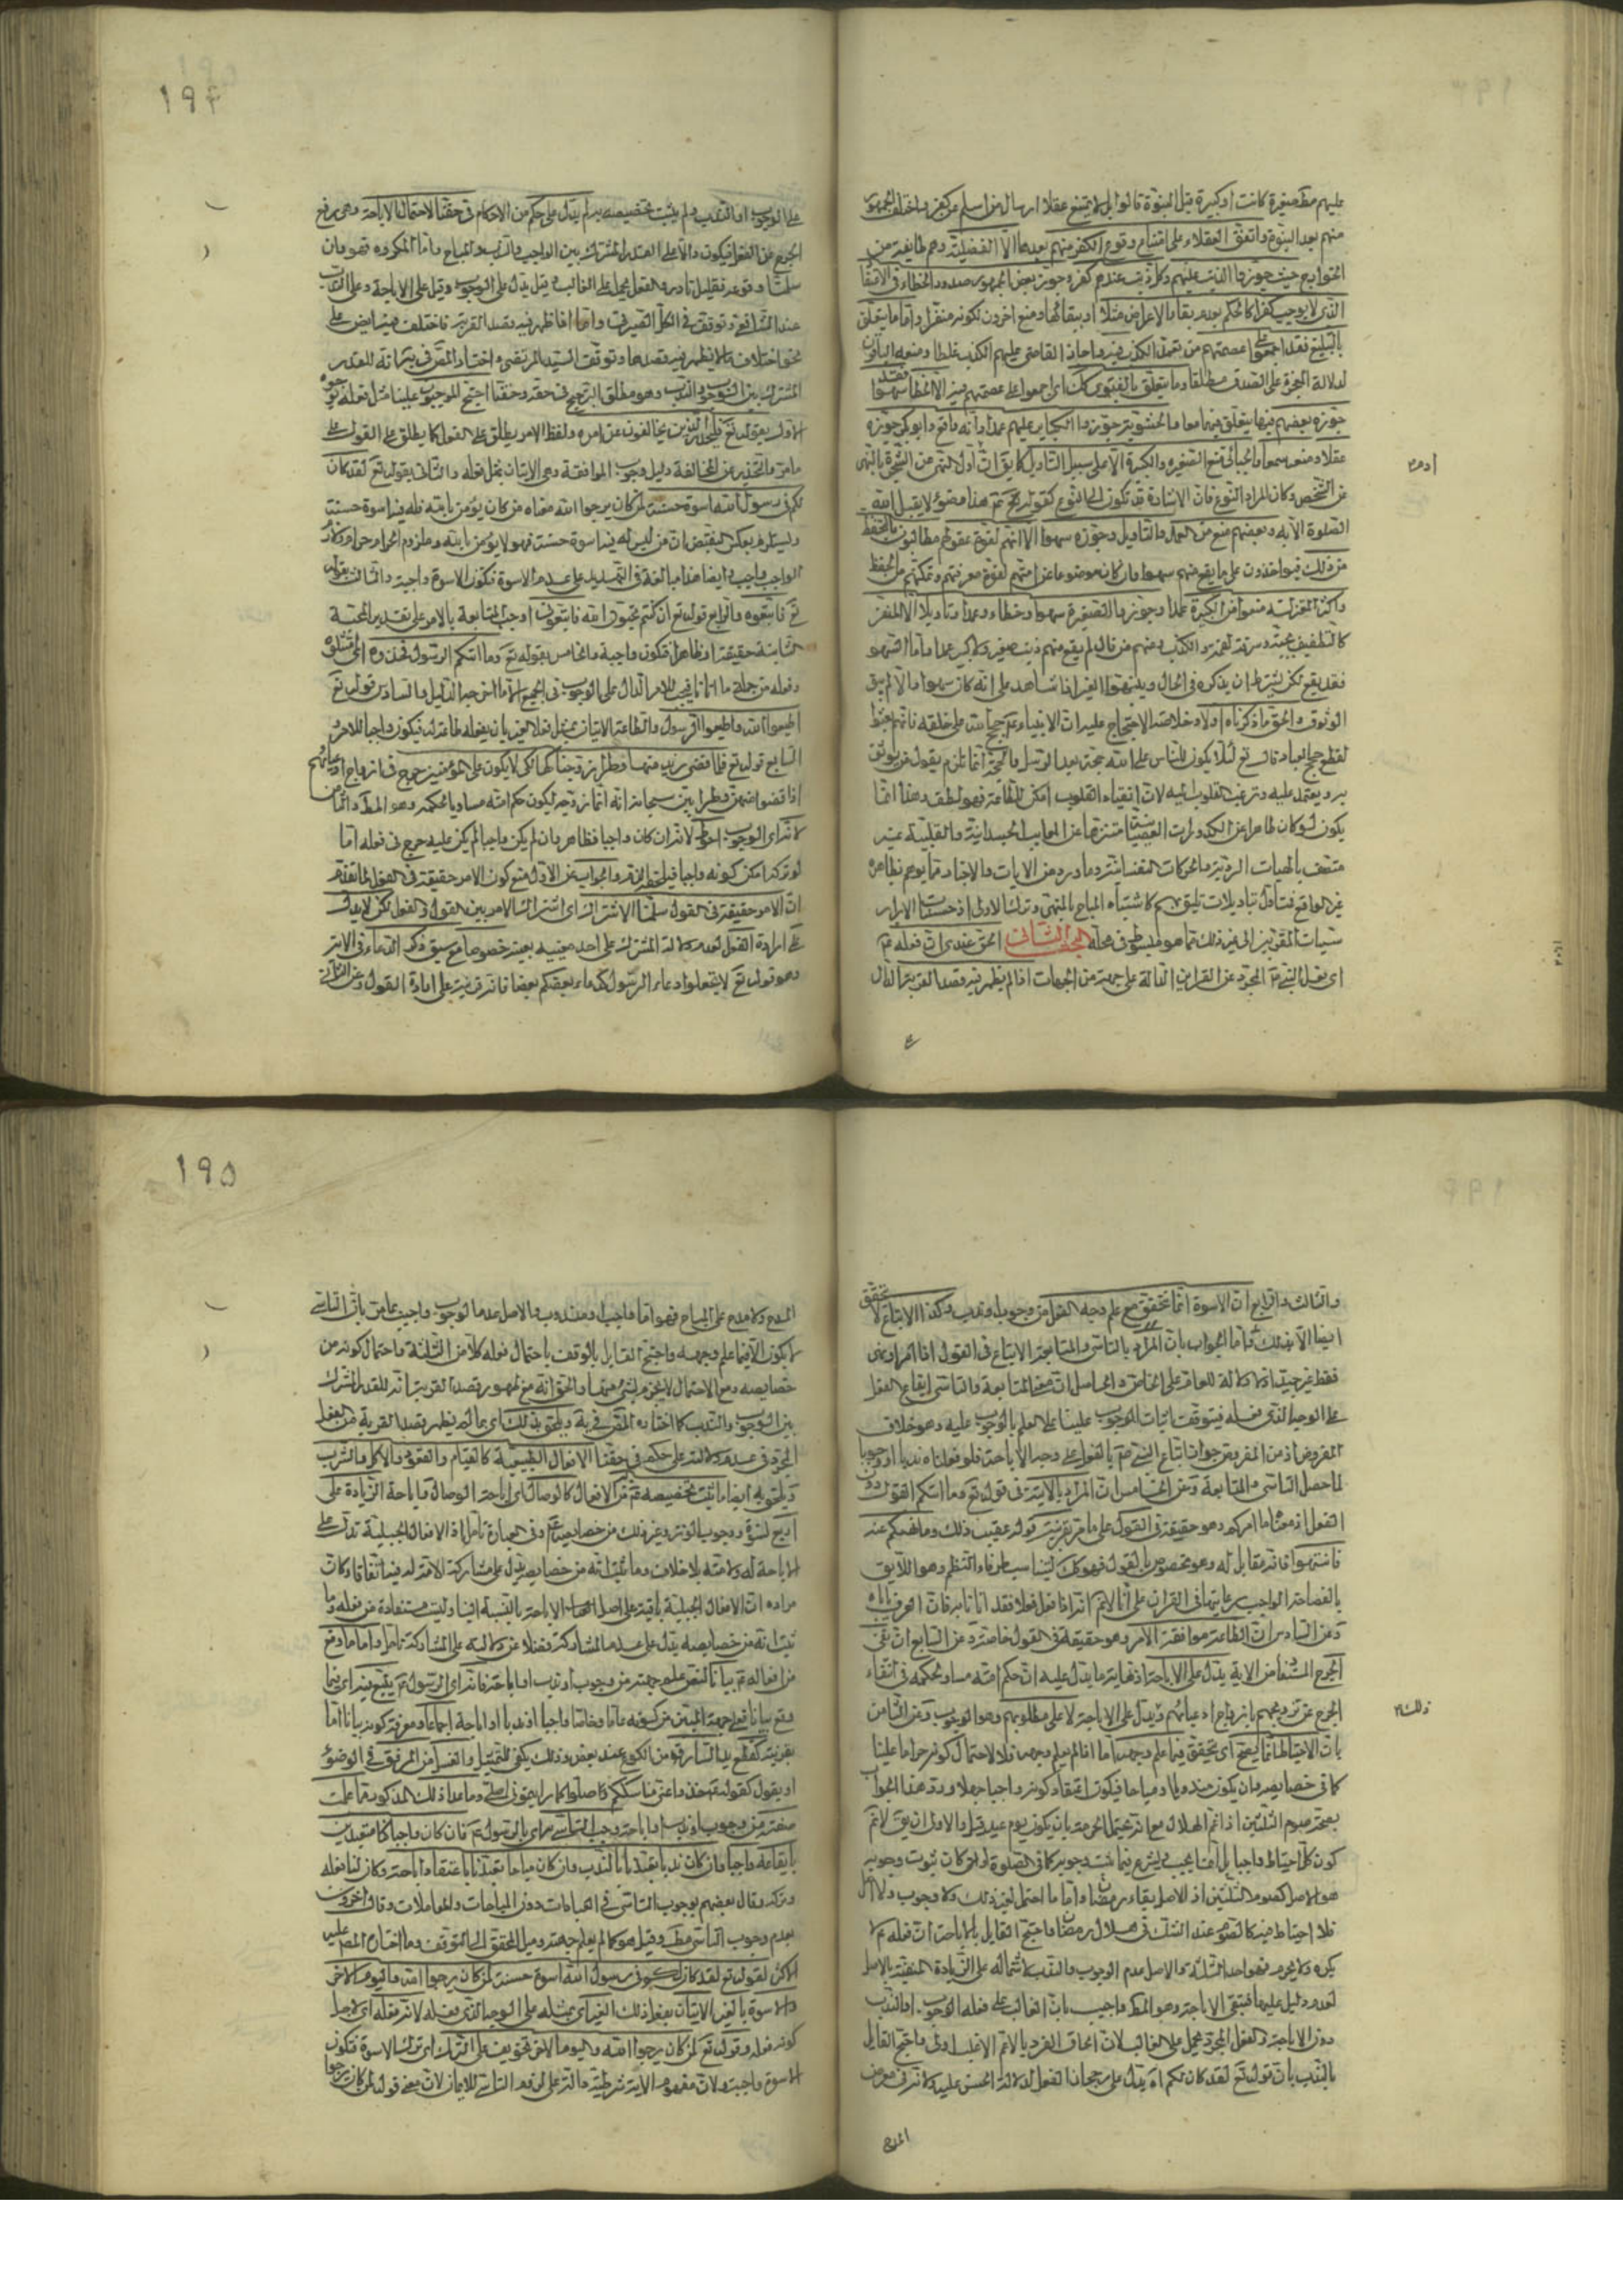 عليهم مط صغيرة كانت او كبيرة قبل النبوة قالوا بل لا يمتنع عقلا ارسال من اسلم من كفره واختلف الجمهور
منهم بعد النبوة واتفق العقلاء على امتناع وقوع الكفر منهم بعدها الا الفضيلية وهم طايفة من
الخوارج حيث جوزوا الذنب عليهم وكل ذنب عندهم كفر وجوز بعض الجمهور صدور الخطاء في الاعتقاد
الذي لا يوجب كفرا كالحكم بعدم بقاء الاعراض مثلا او ببقائها ومنع اخرون لكونه منفرا واما ما يتعلق
بالتبليغ فقد اجمعوا على عصمتهم من تعمد الكذب فيه واجاز القاضي عليهم الكذب غلطا ومنعه الباقون
لدلالة المعجزة على الصدق مطلقا وما يتعلق بالفتوى كك اي اجمعوا على عصمتهم فيه الا الخطاء سهوا فقد
جوزه بعضهم فيها
عقلا ومنعوه سمعا والجبائي منع الصغيرة والكبيرة الا على سبيل التاويل كما يق ان ادم
عن الشخص وكان المراد النوع فان الاشارة قد تكون الى النوع كقوله هذا وضوء لا يقبل الله
الصلوة الا به وبعضهم منع من العمد والتاويل وجوزه سهوا الا انهم لقوة عقولهم مطالبون بالتحفظ
من ذلك فيواخذون على ما يقع منهم سهوا وان كان موضوعا عن امتهم لقوة معرفتهم وتمكنهم من التحفظ
واكثر المعتزلة منعوا من الكبيرة عمدا وجوزوا الصغيرة سهوا وخطاء وعمدا وتاويلا الا المنفر
كالتطفيف بحبة وسرقة لقمة والكذب ومنهم من قال لم يقع منهم ذنب صغير ولا كبير عمدا واما السهو
فقد يقع لكن بشرط ان يذكروه في الحال وينبهوا الغير
الوثوق والحق ما ذكرناه اولا وخلاصة الاحتجاج عليه ان الانبياء حجج الله على خلقه
لقطع حجج العباد قال تع لئلا يكون للناس على الله حجة بعد الرسل والحجة انما تلزم بقول من يوثق
به ويعتمد عليه وترغب القلوب اليه لان انقياد القلوب
يكون لو كان طاهرا عن الكدورات العصيانية متنزها عن المعايب الجسدانية والقلبية غير
متصف بالهيات الردية والحركات النفسانية وما ورد من الايات والاخبار مما يوهم بظاهره
غير الواقع فتاول بتاويلات تليق بهم كاشتباه المباح بالمنهي وترك الاولى اذ حسنات الابرار
سيئات المقربين الى غير ذلك مما هو مبسوط في محله البحث الثاني الحق عندي ان فعله
اي فعل النبي المجرد عن القراين الدالة على جهة من الجهات اذا لم يظهر فيه قصد القربة الدال
على الوجوب او الندب ولم يثبت تخصيصه به لم يدل على حكم من الاحكام في حقنا لاحتمال الاباحة وهي رفع
الحرج عن الفعل فيكون دالا على القدر المشترك بين الواجب والندب والمباح واما المكروه فهو وان
سلمنا وقوعه فقليل نادر والفعل يحمل على الغالب وقيل يدل على الوجوب وقيل على الاباحة وعلى الندب
عند الشافعي وتوقف في الكل الصيرفي واما اذا ظهر فيه قصد القربة فاختلف فيه ايضا على
نحو اختلاف ما لم يظهر فيه قصدها وتوقف السيد المرتضى واختار المص انه للقدر
المشترك بين الوجوب والندب وهو مطلق الترجيح في حقه وحقنا احتج الموجبون علينا مثل فعله بوجوه
الاول بقوله تع فليحذر الذين يخالفون عن امره ولفظ الامر يطلق على الفعل كما يطلق على القول على
ما مر والتحذير عن المخالفة دليل وجوب الموافقة وهي الاتيان بمثل فعله والثاني بقوله تع لقد كان
لكم في رسول الله اسوة حسنة لمن كان يرجوا الله معناه من كان يؤمن بالله فله فيه اسوة حسنة
ويستلزم بعكس النقيض ان من ليس له فيه اسوة حسنة فهو لا يؤمن بالله وملزوم الحرام حرام ولازم
الواجب واجب وايضا هذا مبالغة في التهديد على عدم الاسوة فتكون الاسوة واجبة والثالث بقوله
تع فاتبعوه والرابع قوله تع ان كنتم تحبون الله فاتبعوني اوجب المتابعة بالامر على تقدير المحبة
الثابتة حقيقة او ظاهرا فتكون واجبة والخامس بقوله تع وما اتيكم الرسول فخذوه
وفعله من جملة ما اتانا فيجب للامر الدال على الوجوب والسادس قوله تع
اطيعوا الله واطيعوا الرسول والطاعة الاتيان بمثل فعل الغير بان يفعله طاعة له فيكون واجبا للامر و
السابع قوله تع فلما قضى زيد منها وطرا زوجناكها لكي لا يكون على المؤمنين حرج في ازواج ادعيائهم
اذا قضوا منهن وطرا بين سبحانه انه انما زوجه ليكون حكم امته مساويا لحكمه وهو المط والثامن
انه اي الوجوب احوط لانه ان كان واجبا فظاهر وان لم يكن واجبا لم يكن عليه حرج في فعله اما
لو ترك امكن كونه واجبا والجواب عن الاول منع كون الامر حقيقة في الفعل لما تقدم
ان الامر حقيقة في القول سلمنا الاشتراك اي اشتراك الامر بين القول والفعل لكن لا يدل
على ارادة الفعل لعدم دلالة المشترك على احد معنييه بعينه خصوصا مع سبق ذكر الدعاء في الاية
وهو قوله تع لا تجعلوا دعاء الرسول كدعاء بعضكم بعضا فانه قرينة على ارادة القول وعن الثاني
والثالث والرابع ان الاسوة انما تتحقق مع علم وجه الفعل من وجوب او ندب وكذا الاتباع لا يتحقق
ايضا الا بذلك واما الجواب بان المراد بالتاسي والمتابعة الاتباع في القول
فقط فغير جيد
على الوجه الذي فعله فيتوقف اثبات الوجوب علينا على العلم بالوجوب عليه وهو خلاف
المفروض اذ من المفروض جواز اتباع النبي بالفعل على وجه الاباحة فلو فعلناه ندبا او وجوبا
لما حصل التاسي والمتابعة وعن الخامس ان المراد بالاية في قوله تع وما اتيكم القول دون
الفعل اذ معناه ما امركم وهو حقيقة في القول على ما مر بقرينة قوله عقيب ذلك وما نهيكم عنه
فانتهوا فانه مقابل له وهو مخصوص بالقول فهو كك ليتناسب طرفاء النظم وهو اللايق
بالفصاحة الواجب رعايتها في القران
وعن السادس ان الطاعة موافقة الامر وهو حقيقة في القول خاصة وعن السابع ان نفي
الحرج المستفاد من الاية يدل على الاباحة اذ غاية ما يدل عليه ان حكم امته مساو لحكمه في انتفاء
الحرج عن تزويجهم بازواج ادعيائهم ويدل على الاباحة لا على مطلوبهم وهو الوجوب وعن الثامن
بان الاحتياط انما يصح اي يتحقق فيما علم وجهه اما اذا لم يعلم وجهه فلا لاحتمال كونه حراما علينا
كما في خصايصه وان يكون مندوبا ومباحا فيكون اعتقاد كونه واجبا جهلا ورد هذا الجواب
بصحة صوم الثلثين اذا غم الهلال مع انه يحتمل الحرمة بان يكون يوم عيد قيل والاولى ان يق لا نم
كون كل احتياط واجبا بل انما يجب ويشرع فيما ثبت وجوبه كما في الصلوة او كان ثبوت وجوبه
هو الاصل كصوم الثلثين اذ الاصل بقاء رمضان واما ما احتمل لغير ذلك ولا وجوب ولا اصل
فلا احتياط فيه كالصوم عند الشك في هلال رمضان واحتج القايل بالاباحة ان فعله لا
يكره ولا يحرم فهو احد الثلثة والاصل عدم الوجوب والندب لاشتماله على الزيادة المنفية بالاصل
لعدم دليل عليها فتبقى الاباحة وهو المط واجيب بان الغالب على فعله الوجوب او الندب
دون الاباحة والفعل المجرد يحمل على الغالب لان الحاق الفرد بالاعم الاغلب اولى واحتج القايل
بالندب بان قوله تع لقد كان لكم اه يدل على رجحان الفعل لدلالة الحسن عليه ولانه في معرض
المدح
المدح ولا مدح على المباح فهو اما واجب او مندوب والاصل عدم الوجوب واجيب بما مر بان التاسي
لا يكون الا فيما علم وجهه واحتج القايل بالوقف باحتمال فعله كلا من الثلثة واحتمال كونه من
خصايصه ومع الاحتمال لا يجزم بشيء منها والحق انه مع ظهور قصد القربة انه للقدر المشترك
بين الوجوب والندب كما اختاره المص ويلحق بذلك اي بما لم يظهر قصد القربة من الفعل
المجرد في عدم دلالته على حكم في حقنا الافعال الطبيعية كالقيام والقعود والاكل والشرب
ويلحق به ايضا ما ثبت تخصيصه به من الافعال كالوصال اي اباحة الوصال واباحة الزيادة على
اربع نسوة ووجوب الوتر وغير ذلك من خصايصه وفي العبارة تامل اذ الافعال الجبلية تدل على
الاباحة له ولامته بلا خلاف وما ثبت انه من خصايصه يدل على مشاركة الامة له فيه اتفاقا وكان
مراده ان الافعال الجبلية باقية على اصل الاباحة بالنسبة الينا وليست مستفادة من فعله وما
ثبت انه من خصايصه يدل على عدم المشاركة فضلا عن دلالته على المشاركة تامل واما ما وقع
من افعاله بيانا لنص علم جهته من وجوب او ندب او اباحة
وقع بيانا في جهة المبين من كونه عاما وخاصا واجبا او ندبا او اباحة اجماعا ومعرفة كونه بيانا اما
بقرينة كقطع يد السارق من الكوع عند بعض وذلك يكفي للتمثيل والغسل من المرفق في الوضوء
او بقول كقوله خذوا عني مناسككم وصلوا كما رايتموني اصلي وما عدا ذلك المذكور مما علمت
صفته من وجوب او ندب او اباحة وجب التاسي به اي بالرسول فان كان واجبا كنا متعبدين
بايقاعه واجبا وان كان ندبا تعبدنا بالندب وان كان مباحا تعبدنا باعتقاد اباحته وكان لنا فعله
وتركه وقال بعضهم بوجوب التاسي في العبادات دون المباحات والمعاملات وقال اخرون
بعدم وجوب التاسي مط وقيل هو كما لم يعلم جهته وميل المحقق الى التوقف وما اختاره المص عليه
الاكثر لقوله تع لقد كان لكم في رسول الله اسوة حسنة لمن كان يرجوا الله واليوم الاخر
والاسوة بالغير الاتيان بفعل ذلك الغير اي بمثله على الوجه الذي فعله لانه فعله اي لاجل
كونه فعله وقوله تع لمن كان يرجوا الله واليوم الاخر تخويف على الترك اي ترك الاسوة فتكون
الاسوة واجبة ولان مفهوم الاية شرطية دالة على لزوم التاسي للايمان لان معنى قوله لمن كان يرجوا
١٩٤
١٩٥